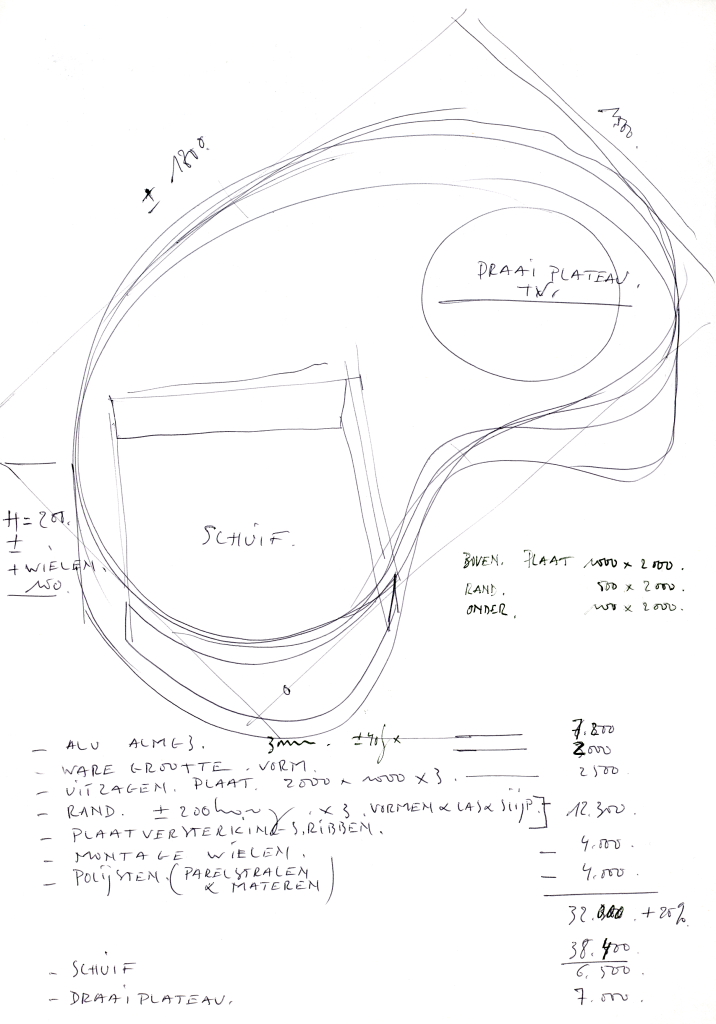 ± 1300.
DRAAI PLATEAU.
+ TV.
H = 200.
±
+ WIELEN.
100.
SCHUIF.
BOVEN. PLAAT 1000 x 2000.
RAND. 500 x 2000.
ONDER. 1000 x 2000.
- ALU ALMG3. 3mm. 7.200
2000
- WARE GROOTTE. VORM. 2500
- UITZAGEN. PLAAT. 2000 x 1000 x 3.
- RAND. ± 200 x 3. VORMEN & LAS & SLIJP. 12.300.
- PLAATVERSTERKINGS.RIBBEN.
- MONTAGE WIELEN. - 4.000.
- POLIJSTEN. (PARELSTRALEN - 4.000.
& MATEREN)
32.000. + 20%
38.400
- SCHUIF 6.500.
- DRAAIPLATEAU. 7.000.